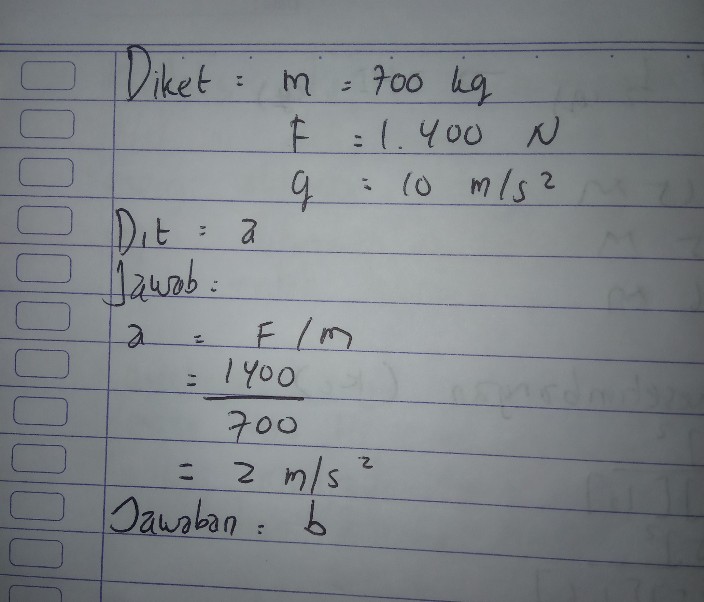 Diket : m = 700 kg
F = 1.400 N
g = 10 m/s²
Dit : a
Jawab :
a = F/m
= 1400
700
= 2 m/s²
Jawaban : b